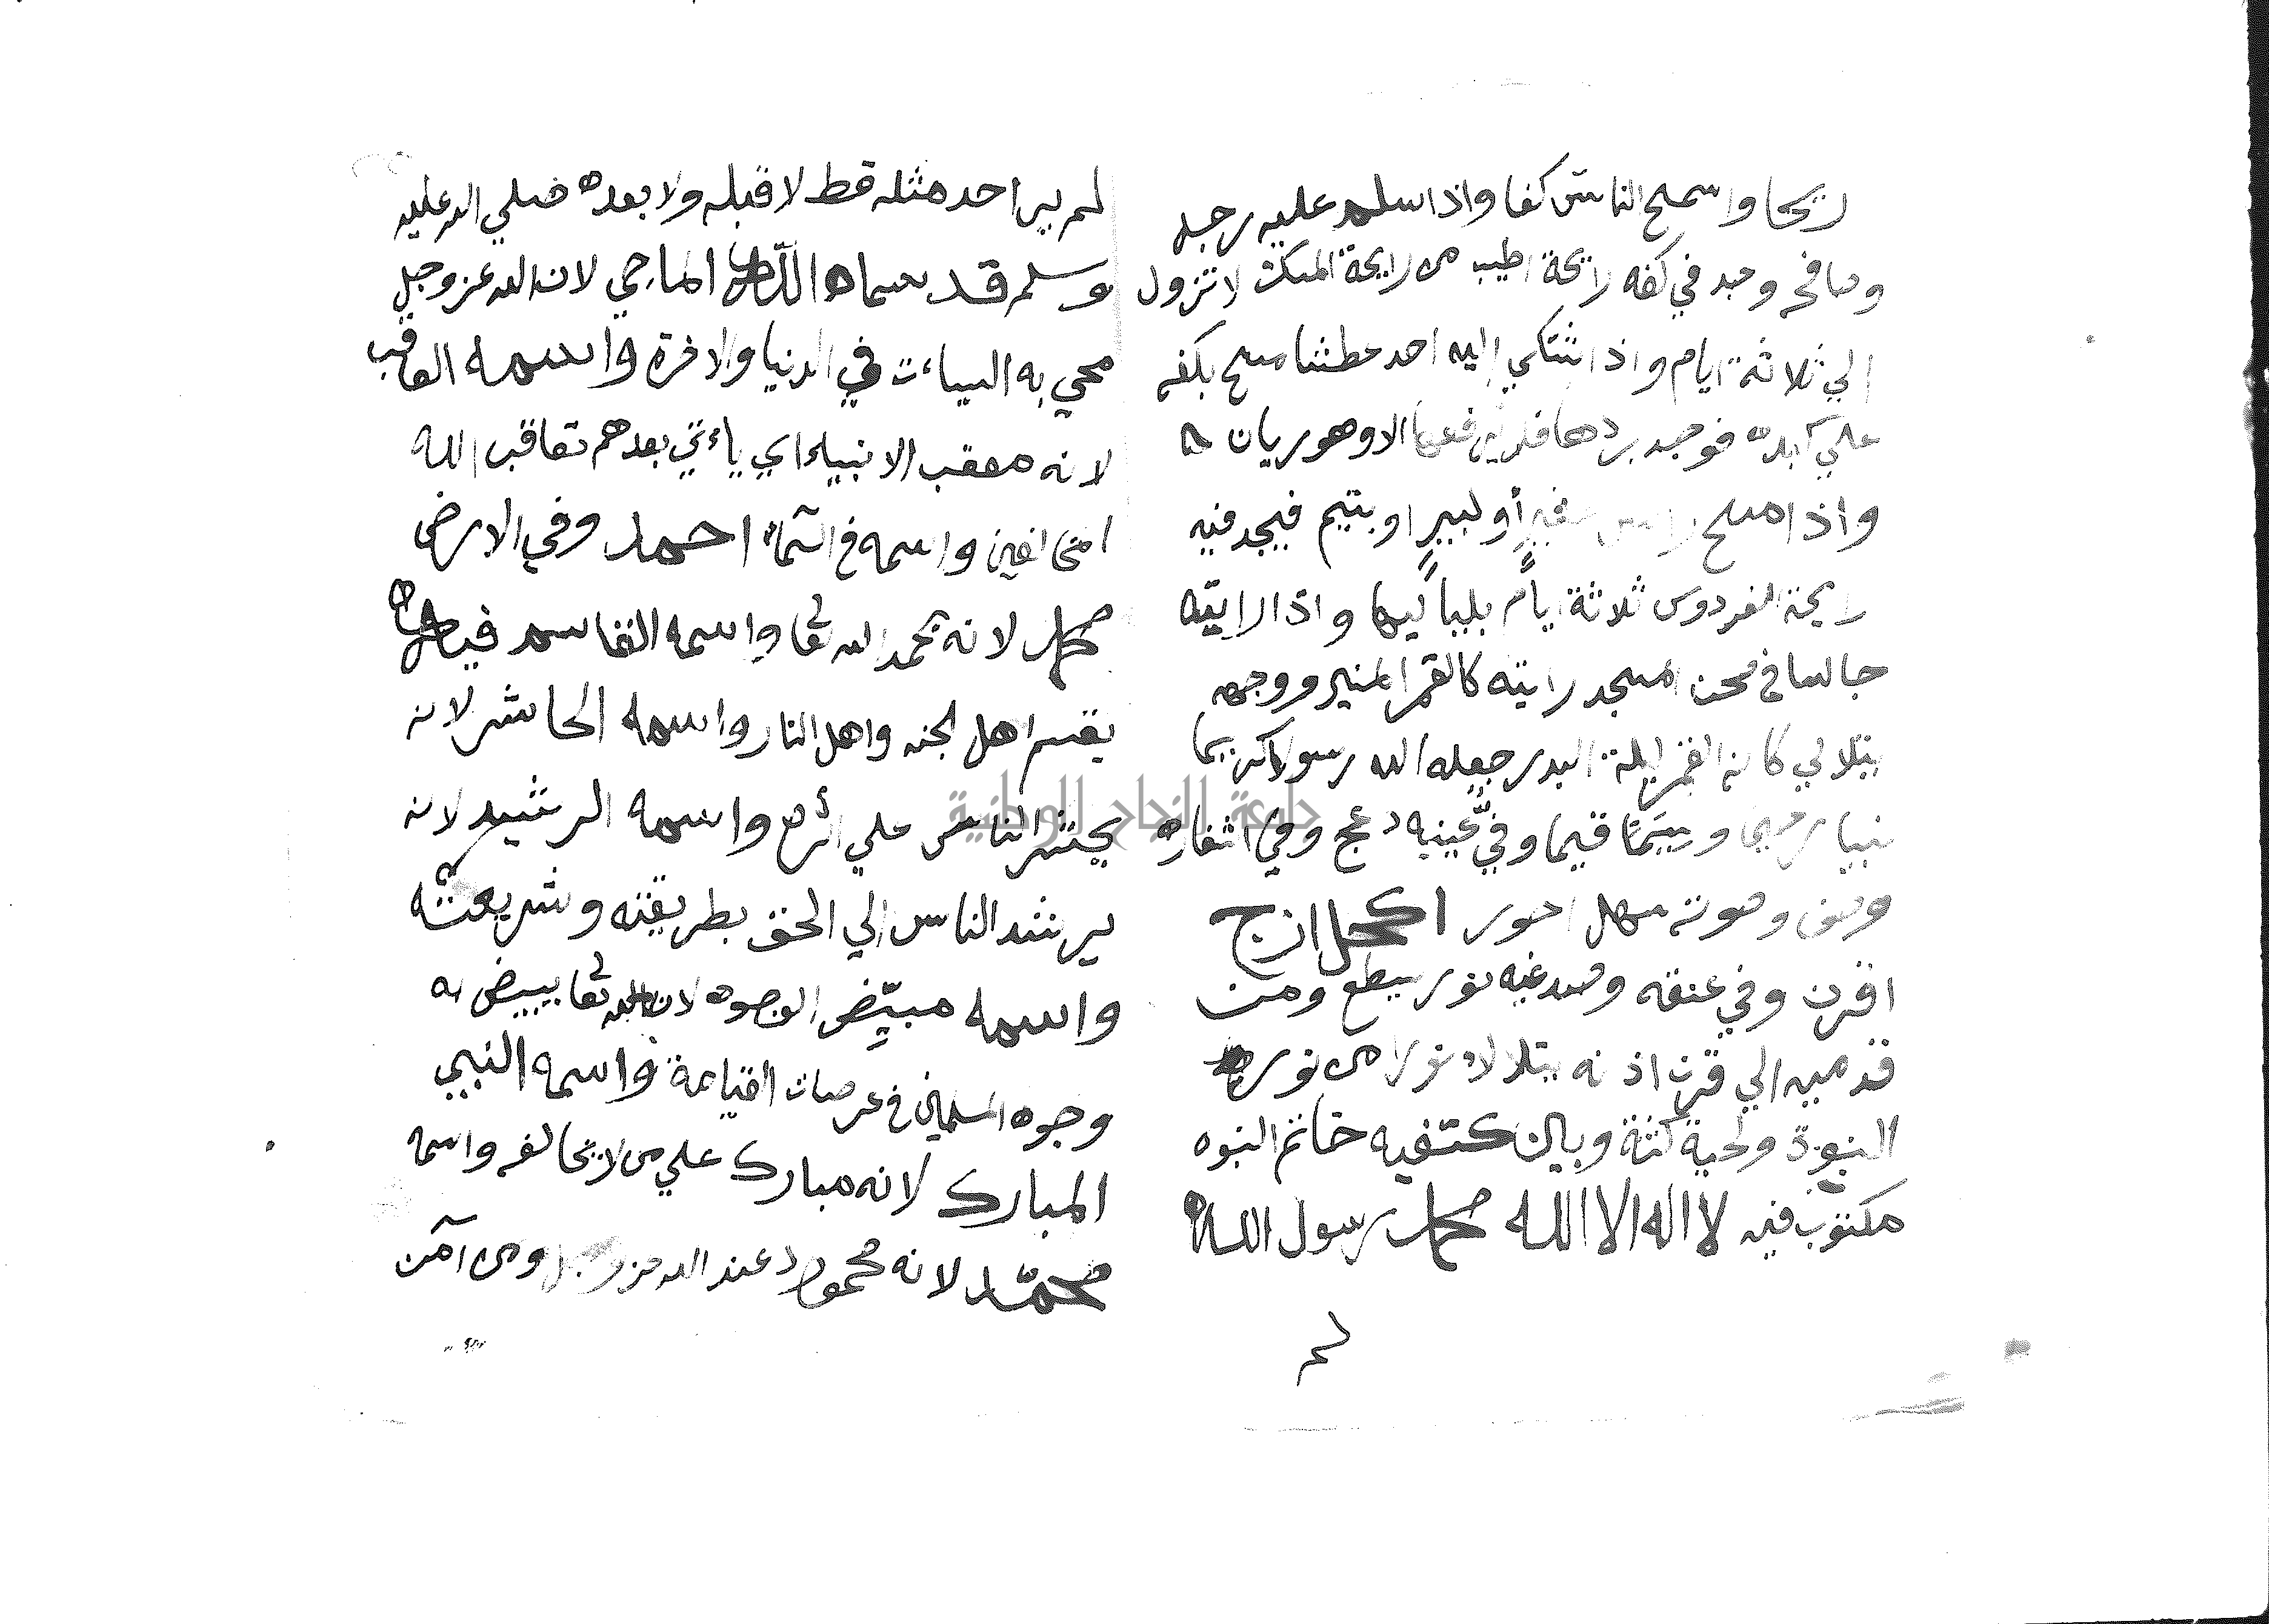 ريحا واسمح الناس كفا واذا سلم عليه رجل
وصافحه وجد في كفه رايحة اطيب من رايحة المسك لا تزول
الي ثلاثة ايام واذا اشتكي اليه احد عطشا مسح بكفه
علي كبده فوجد بردها فلم الا وهو ريان
واذا مسح راس صغير أو كبير او يتيم فيجد فيه
ريحة الفردوس ثلاثة ايام بلياليها واذا رايته
جالسا في صحن المسجد رايته كالقمر المنير ووجهه
يتلالي كانه القمر ليلة البدر جعله الله رسولا كريما
نبيا ويتيما قيما وفي عينيه دعج وفي اشفاره
وصوته سهل احور اكحل ازج
اقرن وفي عنقه وصدغيه نور يسطع ومن
قدميه الي قرن اذنه يتلالاه نورا من نور
النبوة ولحية كثة وبين كتفيه خاتم النبوه
مكتوب فيه لا اله الا الله محمد رسول الله
لم
لم ير احد مثله قط لا قبله ولا بعده صلي الله عليه
وسلم قد سماه الله الماحي لان الله عز وجل
محي به السياءت في الدنيا والاخرة واسمه العاقب
لانه معقب الانبياء اي يأتي بعدهم تعاقب الله
واسمه في السماء احمد وفي الارض
محمد لانه بحمد الله تعا واسمه القاسم
يقسم اهل الجنه واهل النار واسمه الحاشر لانه
يحشر الناس علي اثره واسمه الرشيد لانه
يرشد الناس الي الحق بطريقته وشريعته
واسمه مبيّض الوجوه لان الله تعا يبيض به
وجوه المسلمين في عرصات القيامة واسمه النبي
المبارك لانه مبارك علي من لا يخالفه واسمه
محمّد لانه محمود عند الله عز وجل ومن آمن
جامعة النجاح الوطنية